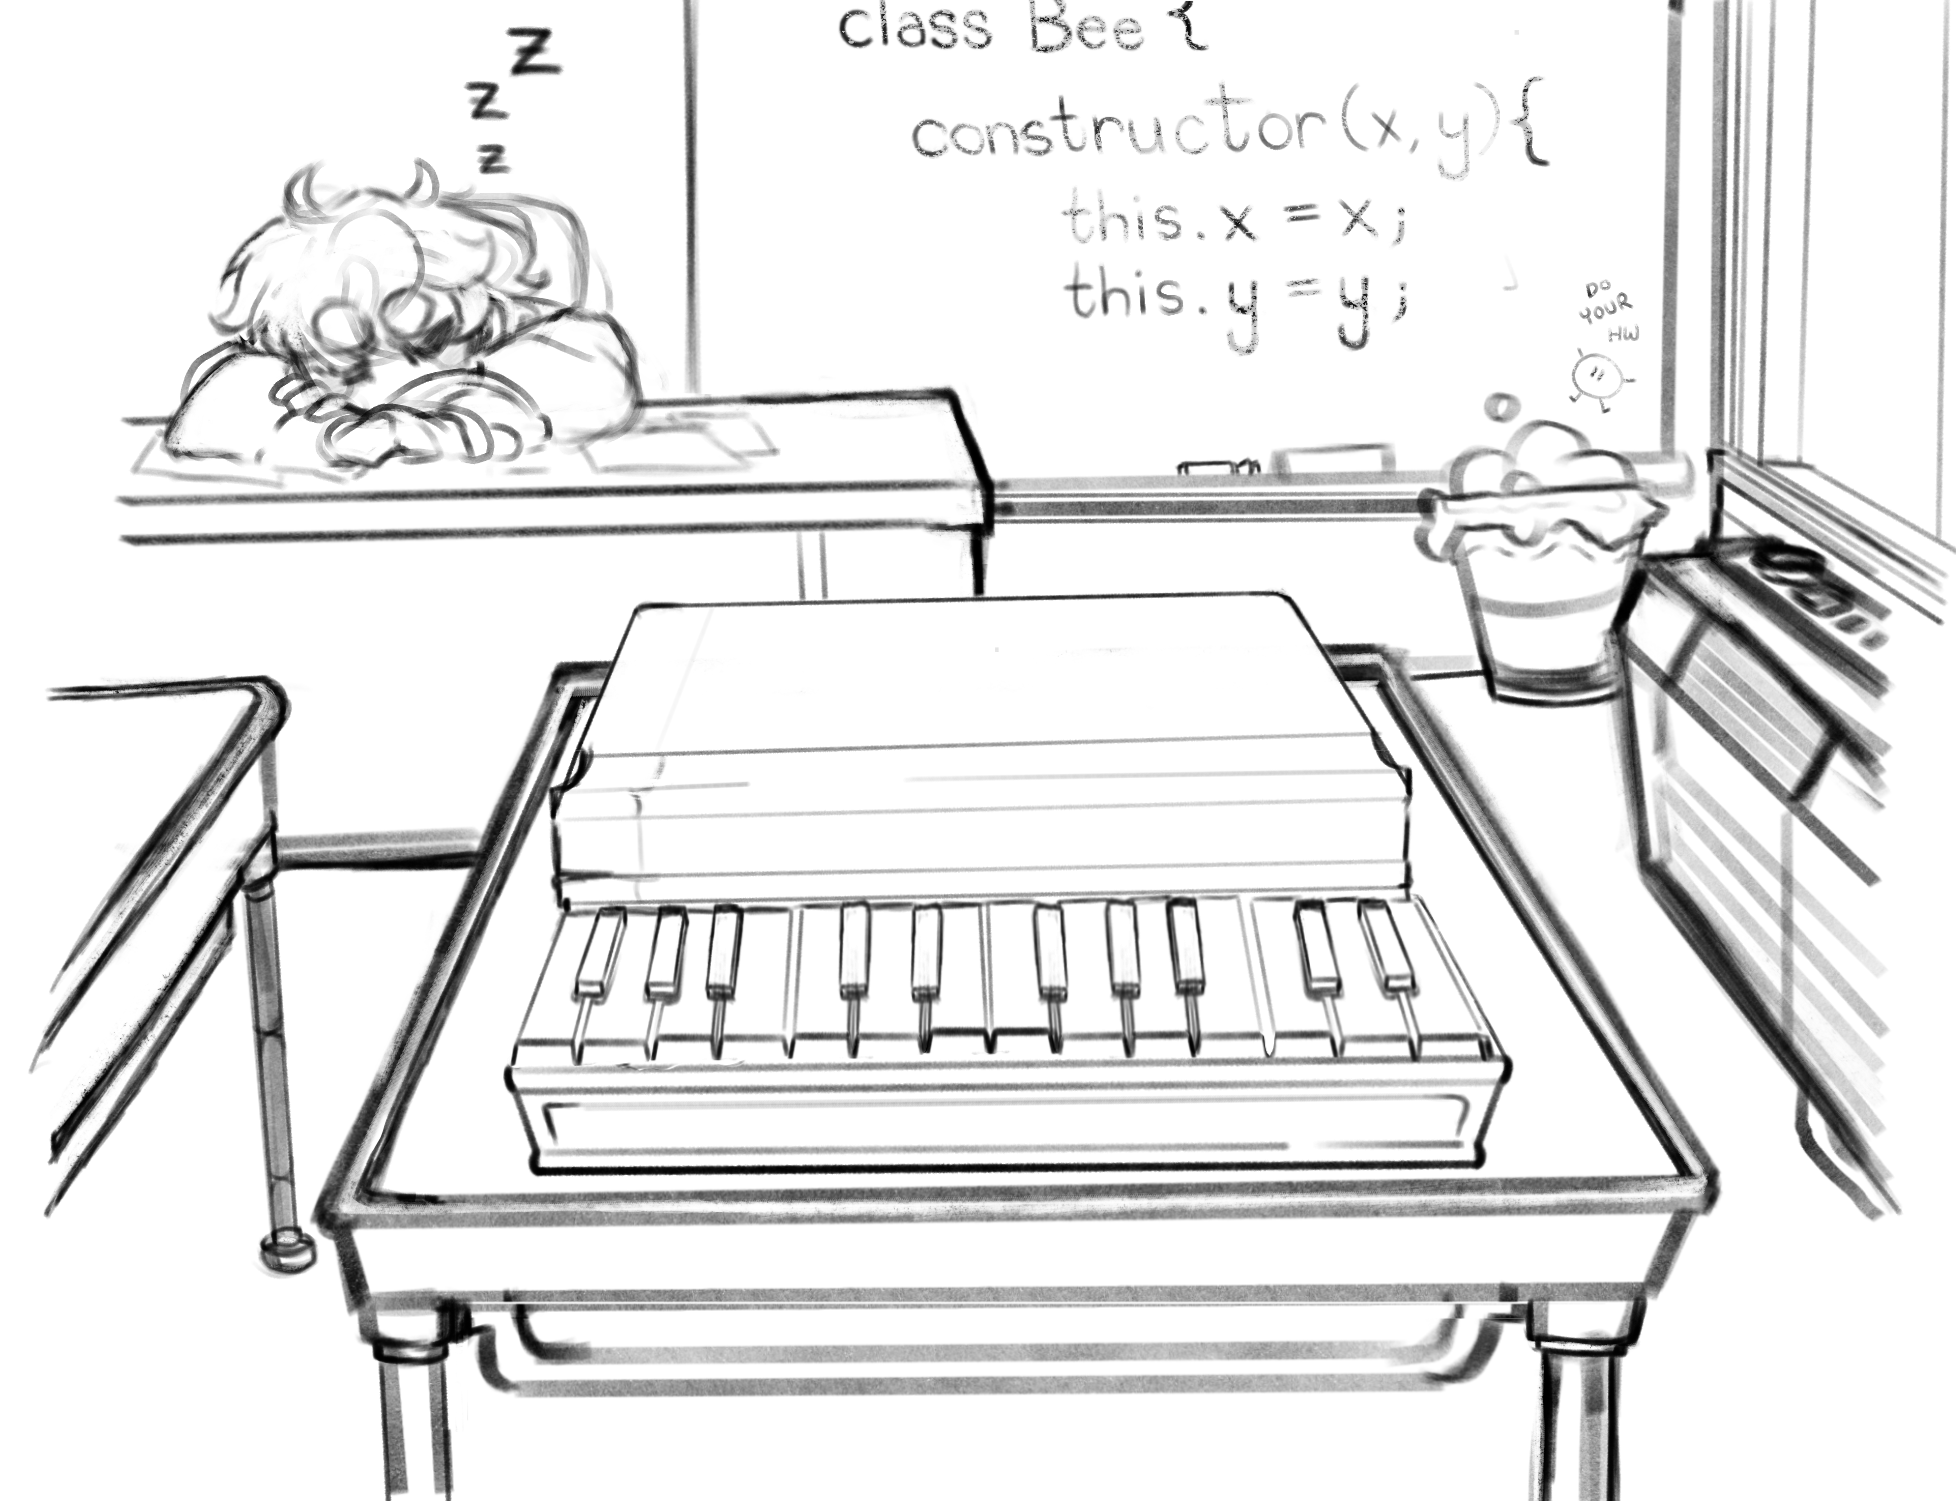 z
z
z
class Bee {
constructor(x, y) {
this.x = x;
this.y = y;
DO
YOUR
HW